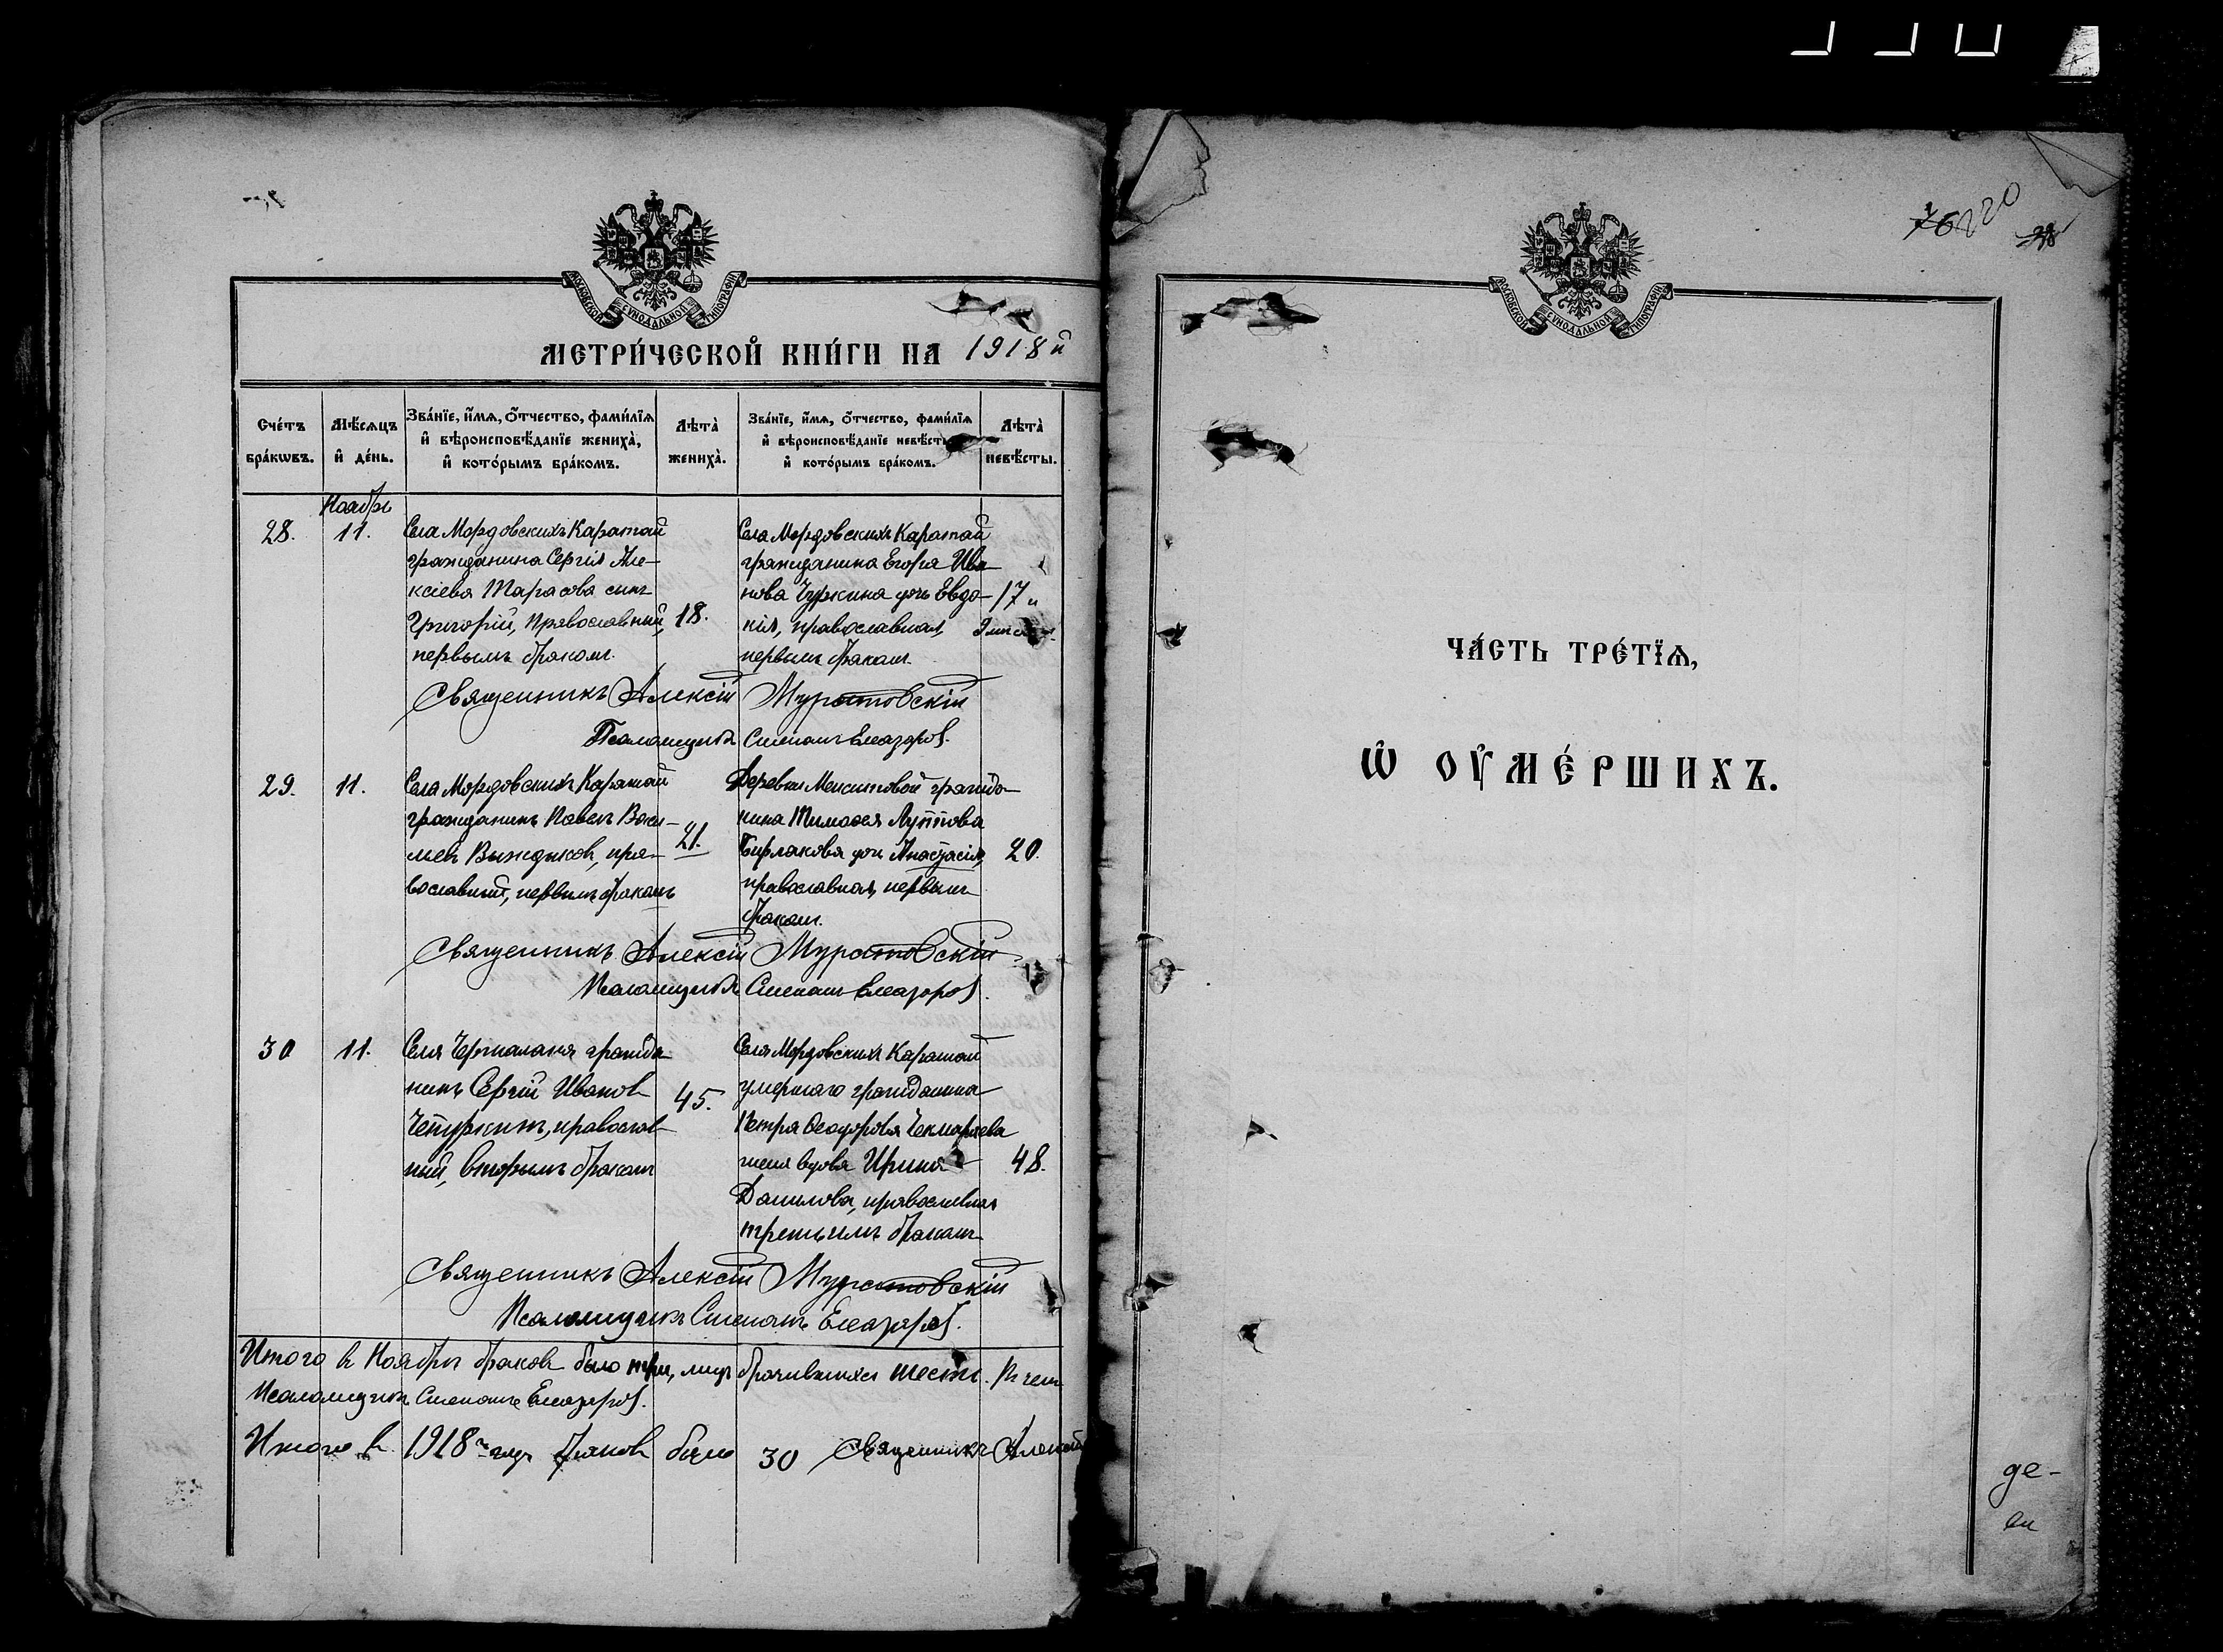 МОСКОВСКОЙ СѴНОДАЛЬНОЙ ТИПОГРАФІИ
МЕТРИ́ЧЕСКОЙ КНИ́ГИ НА 1918й
Сче́тъ бра́кѡвъ.
Мѣ́сѧцъ и҆ де́нь.
Зва́нїе, и҆́мѧ, ѻ҆́тчество, фами́лїѧ и҆ вѣроисповѣ́данїе жениха̀, и҆ кото́рымъ бра́комъ.
Лѣта̀ жениха̀.
Зва́нїе, и҆́мѧ, ѻ҆́тчество, фами́лїѧ и҆ вѣроисповѣ́данїе невѣ́сты и҆ кото́рымъ бра́комъ.
Лѣта̀ невѣ́сты.
Ноябрь
28.
11.
Села Мордовскихъ Каратай
гражданина Сергія Але-
ксіева Тарасова сынъ
Григорій, православный,
первымъ бракомъ.
18.
Села Мордовскихъ Каратай
гражданина Егора Ива-
нова Чуркина дочь Евдо-
кія, православная,
первымъ бракомъ.
17 и
9
Священникъ Алексій Муратовскій
Псаломщикъ Стефанъ Елеазаровъ.
29.
11.
Села Мордовскихъ Каратай
гражданинъ Павелъ Васи-
льевъ, пра-
вославный, первымъ бракомъ
21.
Деревни гражда-
нина Тимофея
Бурлакова дочь Анастасія,
православная, первымъ
бракомъ.
20.
Священникъ Алексій Муратовскій
Псаломщикъ Стефанъ Елеазаровъ.
30
11.
Села гражда-
нинъ Сергій Ивановъ
православ-
ный, вторымъ бракомъ
45.
Села Мордовскихъ Каратай
умершаго гражданина
Петра Феодорова Чекмарева
жена вдова Ирина
Данилова, православная
третьимъ бракомъ
48.
Священникъ Алексій Муратовскій
Псаломщикъ Стефанъ Елеазаровъ.
Итого въ Ноябрѣ браковъ было три, лицъ брачившихся шесть. В чемъ
Псаломщикъ Стефанъ Елеазаровъ.
Итого въ 1918 году браковъ было 30 Священникъ Алексій
76 220
38
МОСКОВСКОЙ СѴНОДАЛЬНОЙ ТИПОГРАФІИ
ЧА́СТЬ ТРЕ́ТЇѦ,
Ѡ҆ ОУ҆МЕ́РШИХЪ.
де-